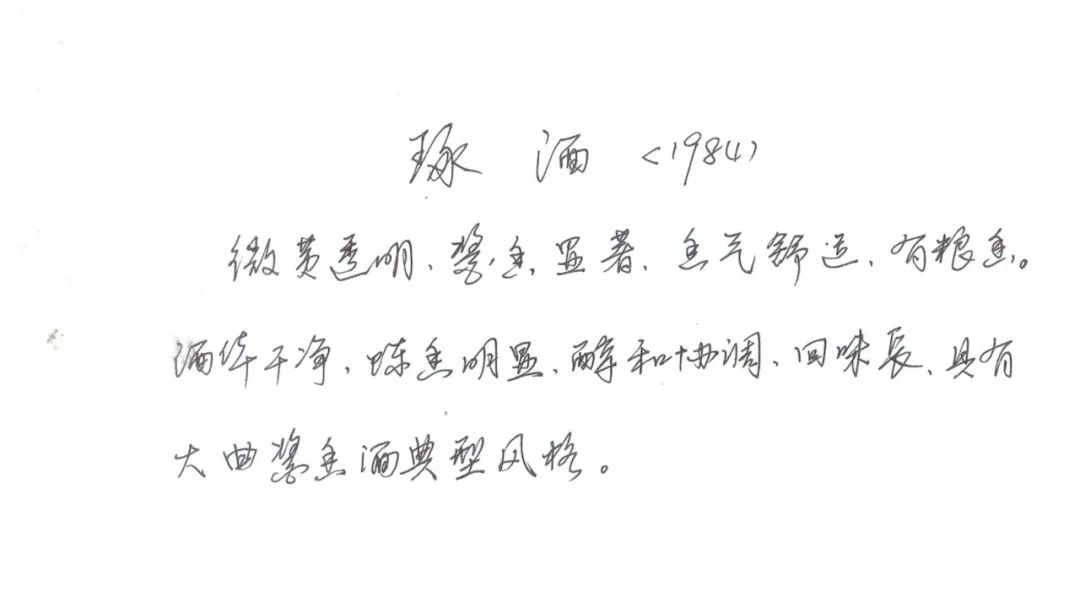 琢 酒 <1984>
微黄透明、酱香显著、香气舒适、有粮香。
酒体干净、陈香明显、醇和协调、回味长、具有
大曲酱香酒典型风格。